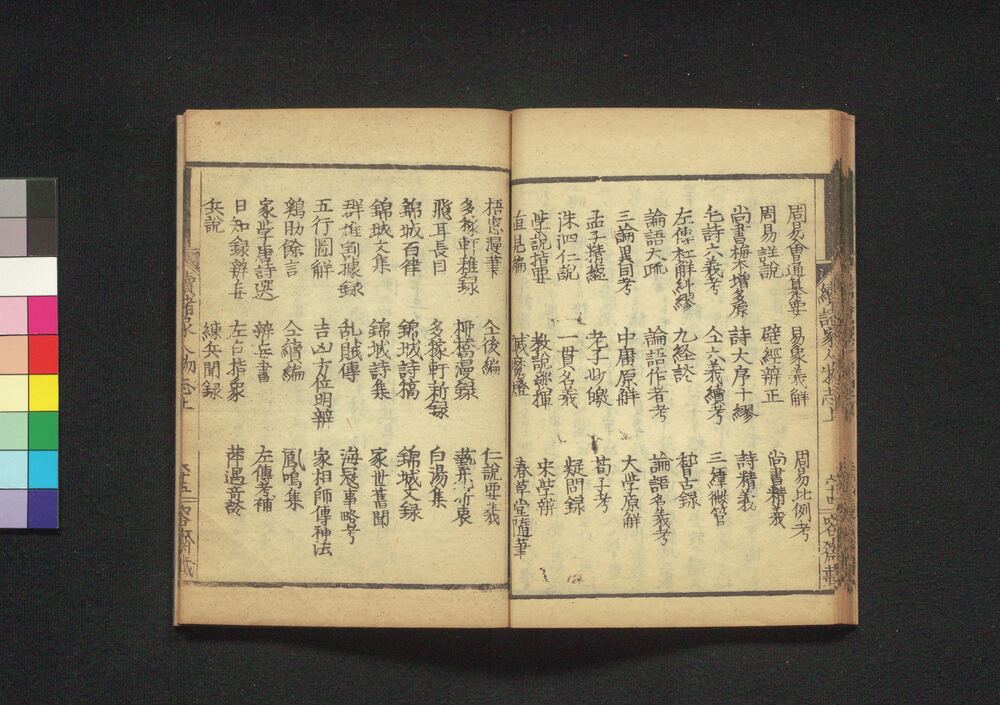 周易會通纂要 易象義解 周易比例考
周易註說 壁經辨正 尚書精義
尚書梅本增多原 詩大序十繆 詩精義
毛詩六義考 仝六義續考 三緯微管
左傳杜解紕繆 九経談 稽古録
論語大疏 論語作者考 論語名義考
三論異同考 中庸原解 大学原解
孟子精蘊 老子妙皦 荀子考
洙泗仁說 一貫名義 疑問録
学說指要 教說發揮 宋学辨
直見編 春草堂隨筆
梧窓漫筆 仝後編 仁說要義
多稼軒雜録 柳橋漫録
飛耳長目 多稼軒新録 白湯集
錦城百律 錦城詩稿 錦城文録
錦城文集 錦城詩集 家世舊聞
群雄割據録 乱賊傳 海寇事略考
五行圖解 吉凶方位明辨 家相師傳神法
鷄肋餘言 仝續編 鳳鳴集
家学唐詩選 辨兵書 左傳考補
日知録辨妄 左占指象
兵說 練兵聞録
續諸家人物志上 六十四
續諸家人物志上 六十五